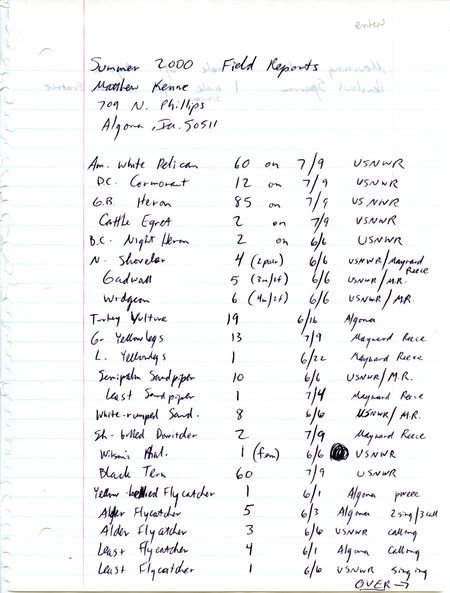 enter
Summer 2000 Field Reports
Matthew Kenne
709 N. Phillips
Algona, Ia. 50511
Am. White Pelican 60 on 7/9 USNWR
D.C. Cormorant 12 on 7/9 USNWR
G.B. Heron 85 on 7/9 USNWR
Cattle Egret 2 on 7/9 USNWR
B.C. Night Heron 2 on 6/6 USNWR
N. Shoveler 4 (2 pair) 6/6 USNWR/Maynard Reece
Gadwall 5 (3m/2f) 6/6 USNWR/M.R.
Widgeon 6 (4m/2f) 6/6 USNWR/M.R.
Turkey Vulture 19 6/16 Algona
Gr. Yellowlegs 13 7/9 Maynard Reece
L. Yellowlegs 1 6/22 Maynard Reece
Semipalm Sandpiper 10 6/6 USNWR/M.R.
Least Sandpiper 1 7/4 Maynard Reece
White-rumped Sand. 8 6/6 USNWR/M.R.
Sh-billed Dowitcher 2 7/9 Maynard Reece
Wilson's Phal. 1 (fem) 6/6 USNWR
Black Tern 60 7/9 USNWR
Yellow-bellied Flycatcher 1 6/1 Algona
Alder Flycatcher 5 6/3 Algona 2 sing/3 call
Alder Flycatcher 3 6/6 USNWR calling
Least Flycatcher 4 6/1 Algona Calling
Least Flycatcher 1 6/6 USNWR singing
OVER →